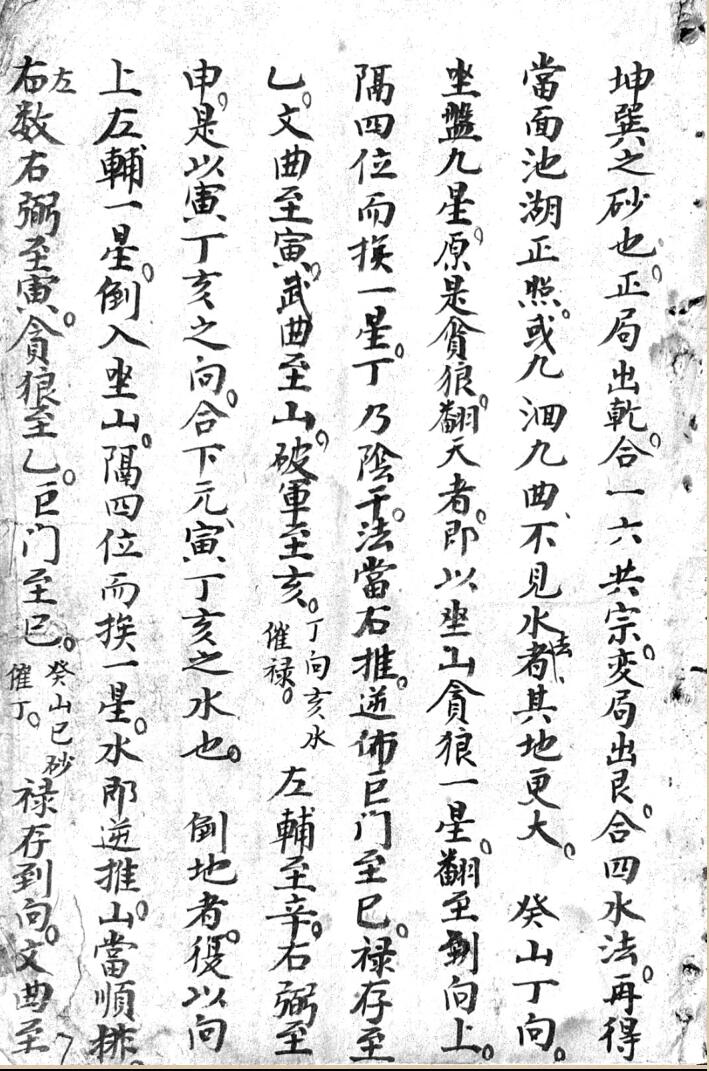 坤巽之砂也。正局出乹。合一六共宗。变局出艮。合四水法。再得
當面池湖正照。或九洄九曲、不見水法者、其地更大。　癸山丁向。
坐盤九星。原是貪狼。翻天者。即以坐山貪狼一星。翻至到向上。
隔四位而挨一星。丁乃陰干。法當右推。逆佈巨门至巳。禄存至
乙。文曲至寅。武曲至山。破軍至亥。丁向亥水催禄。左輔至辛。右弼至
申。是以寅丁亥之向。合下元寅丁亥之水也。　倒地者。復以向
上左輔一星。倒入坐山。隔四位而挨一星。水即逆推。山當順排。
左右数右弼至寅。貪狼至乙。巨门至巳。癸山巳砂催丁。禄存到向。文曲至